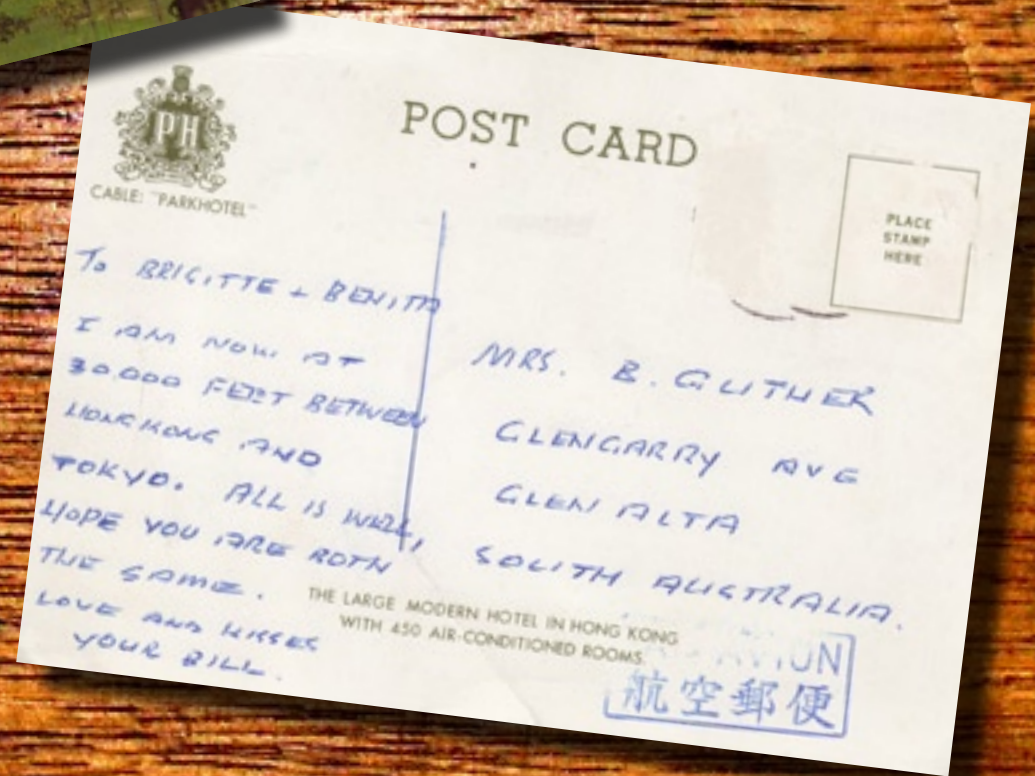 PH
CABLE: "PARKHOTEL"
POST CARD
PLACE
STAMP
HERE
To BRIGITTE + BENITA
I AM NOW AT
30.000 FEET BETWEEN
HONGKONG AND
TOKYO. ALL IS WELL,
HOPE YOU ARE BOTH
THE SAME.
LOVE AND KISSES
YOUR BILL.
MRS. B. GUTHER
GLENGARRY AVE
GLEN ALTA
SOUTH AUSTRALIA.
THE LARGE MODERN HOTEL IN HONG KONG
WITH 450 AIR-CONDITIONED ROOMS.
AVION
航空郵便